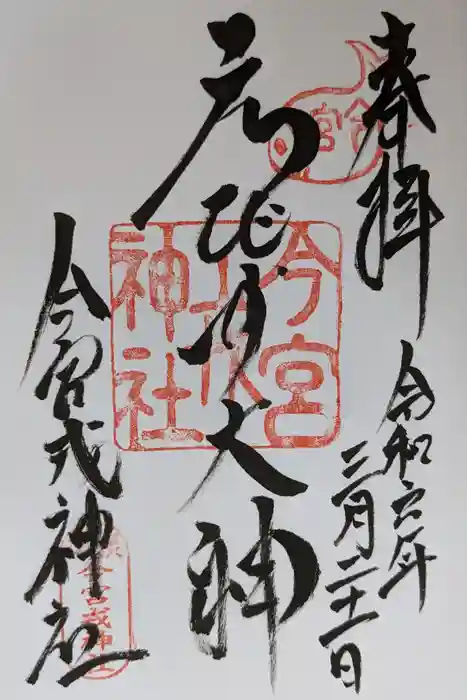 奉拝
令和六年
三月二十一日
今宮
ゑびす大神
今宮戎神社
今宮戎神社
今宮戎神社